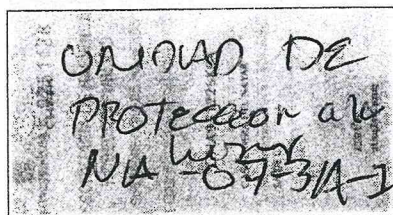 UNIDAD DE
PROTECCION a la
NIA -07-3/A-1